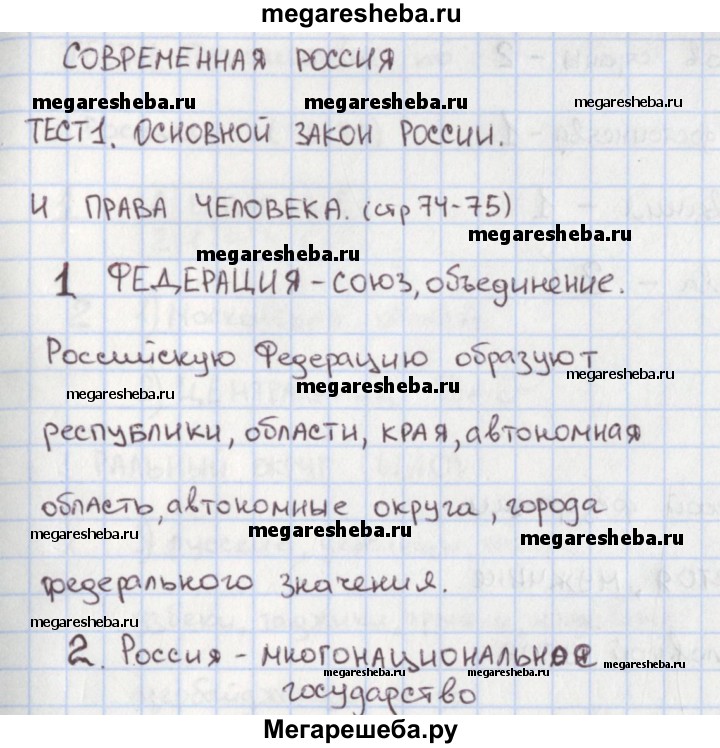 megaresheba.ru
СОВРЕМЕННАЯ РОССИЯ
megaresheba.ru megaresheba.ru megaresheba.ru
ТЕСТ1. ОСНОВНОЙ ЗАКОН РОССИИ.
И ПРАВА ЧЕЛОВЕКА. (стр 74-75)
megaresheba.ru
megaresheba.ru
1 ФЕДЕРАЦИЯ - СОЮЗ, объединение.
Российскую Федерацию образуют
megaresheba.ru megaresheba.ru megaresheba.ru
республики, области, края, автономная
область, автономные округа, города
megaresheba.ru megaresheba.ru megaresheba.ru
федерального значения.
megaresheba.ru megaresheba.ru megaresheba.ru
2. Россия - многонациональное
megaresheba.ru megaresheba.ru megaresheba.ru
государство
Мегарешеба.ру